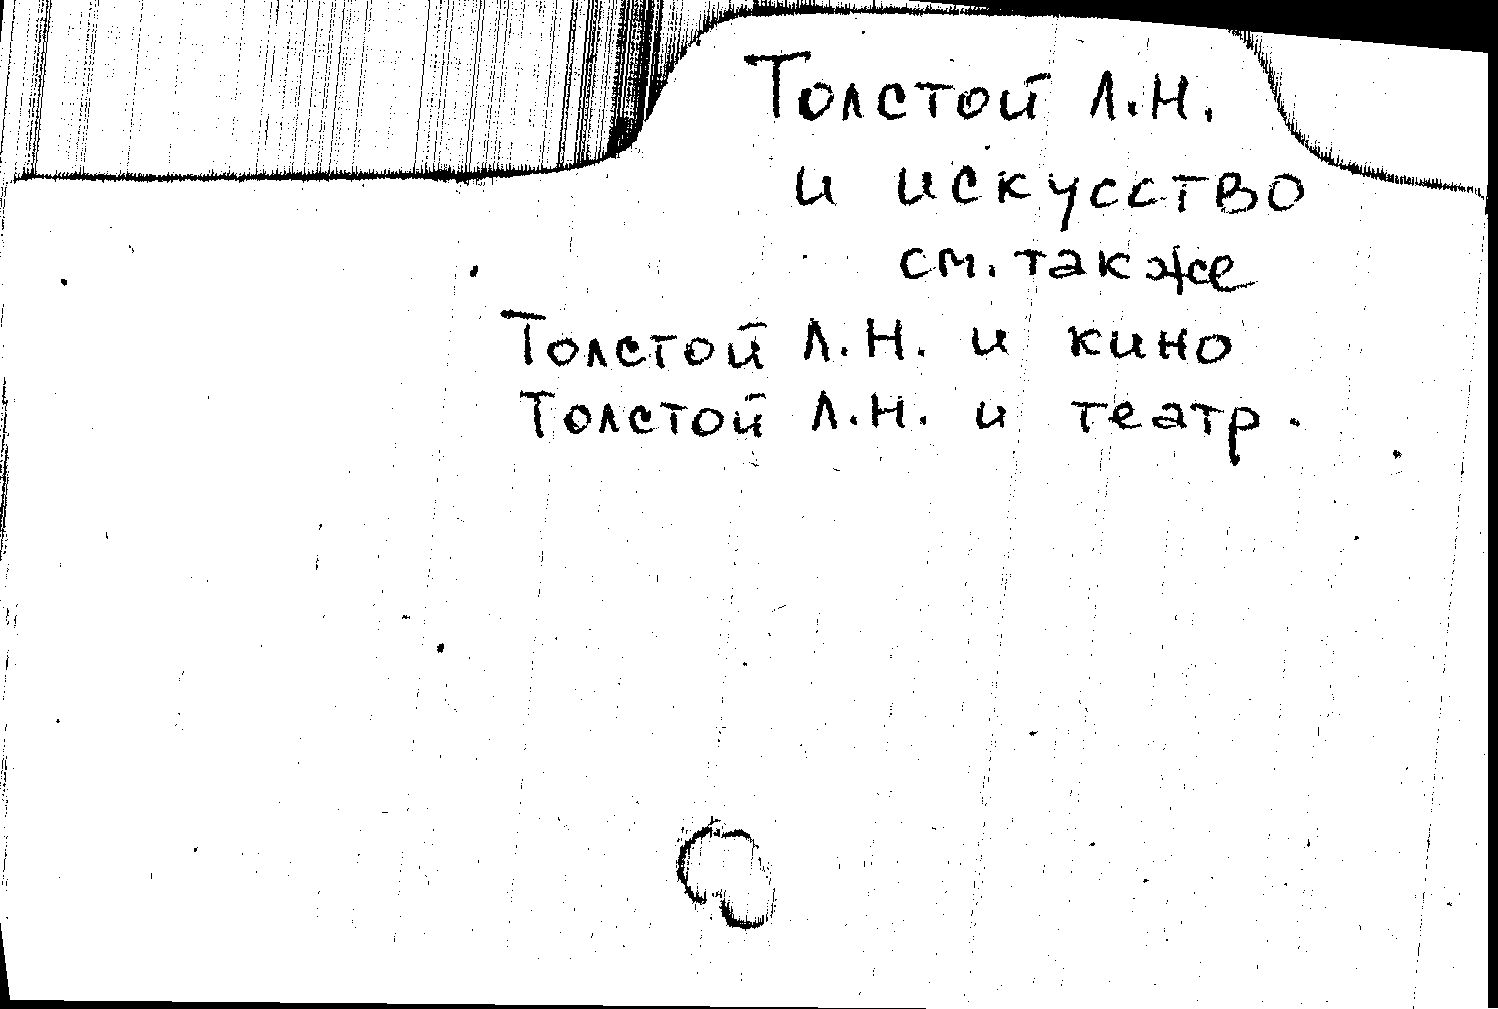 Толстой Л.Н.
и искусство
см. также
Толстой Л.Н. и кино
Толстой Л.Н. и театр.